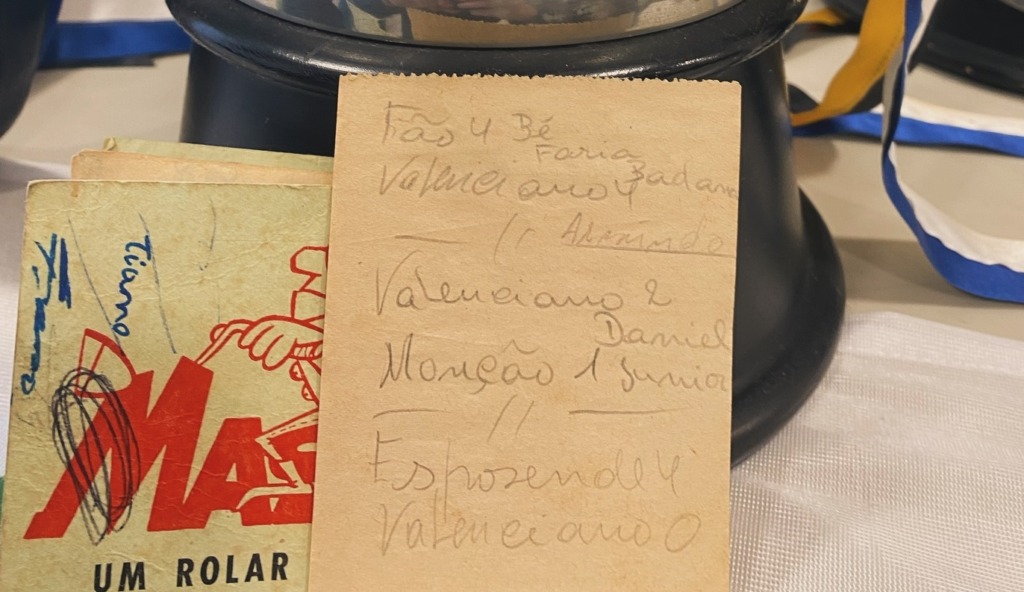 Fão 4 Bé
Faria
Valenciano 4 Badana
— // Armindo
Valenciano 2
Daniel
Monção 1 Junior
— // —
Esposende 4
Valenciano 0
Tiano
MAS
UM ROLAR